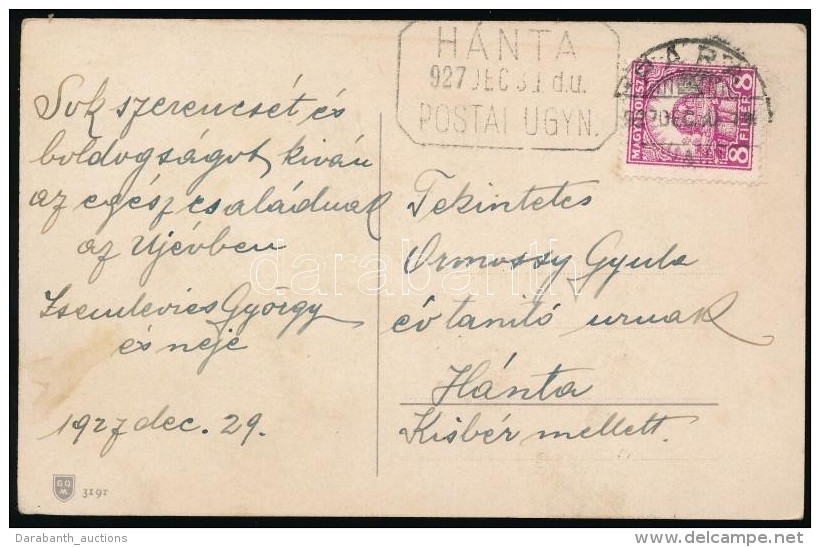 HÁNTA
927 DEC 30 d.u.
POSTAI ÜGYN.
MAGYARORSZÁG
8 FILLÉR 8
Sok szerencsét és
boldogságot kiván
az egész családnak
az Ujévben
György
és neje
1927 dec. 29.
Tekintetes
Ormossy Gyula
év tanító urnak
Hánta
Kisbér mellett.
3191
darabanth
Darabanth_auctions